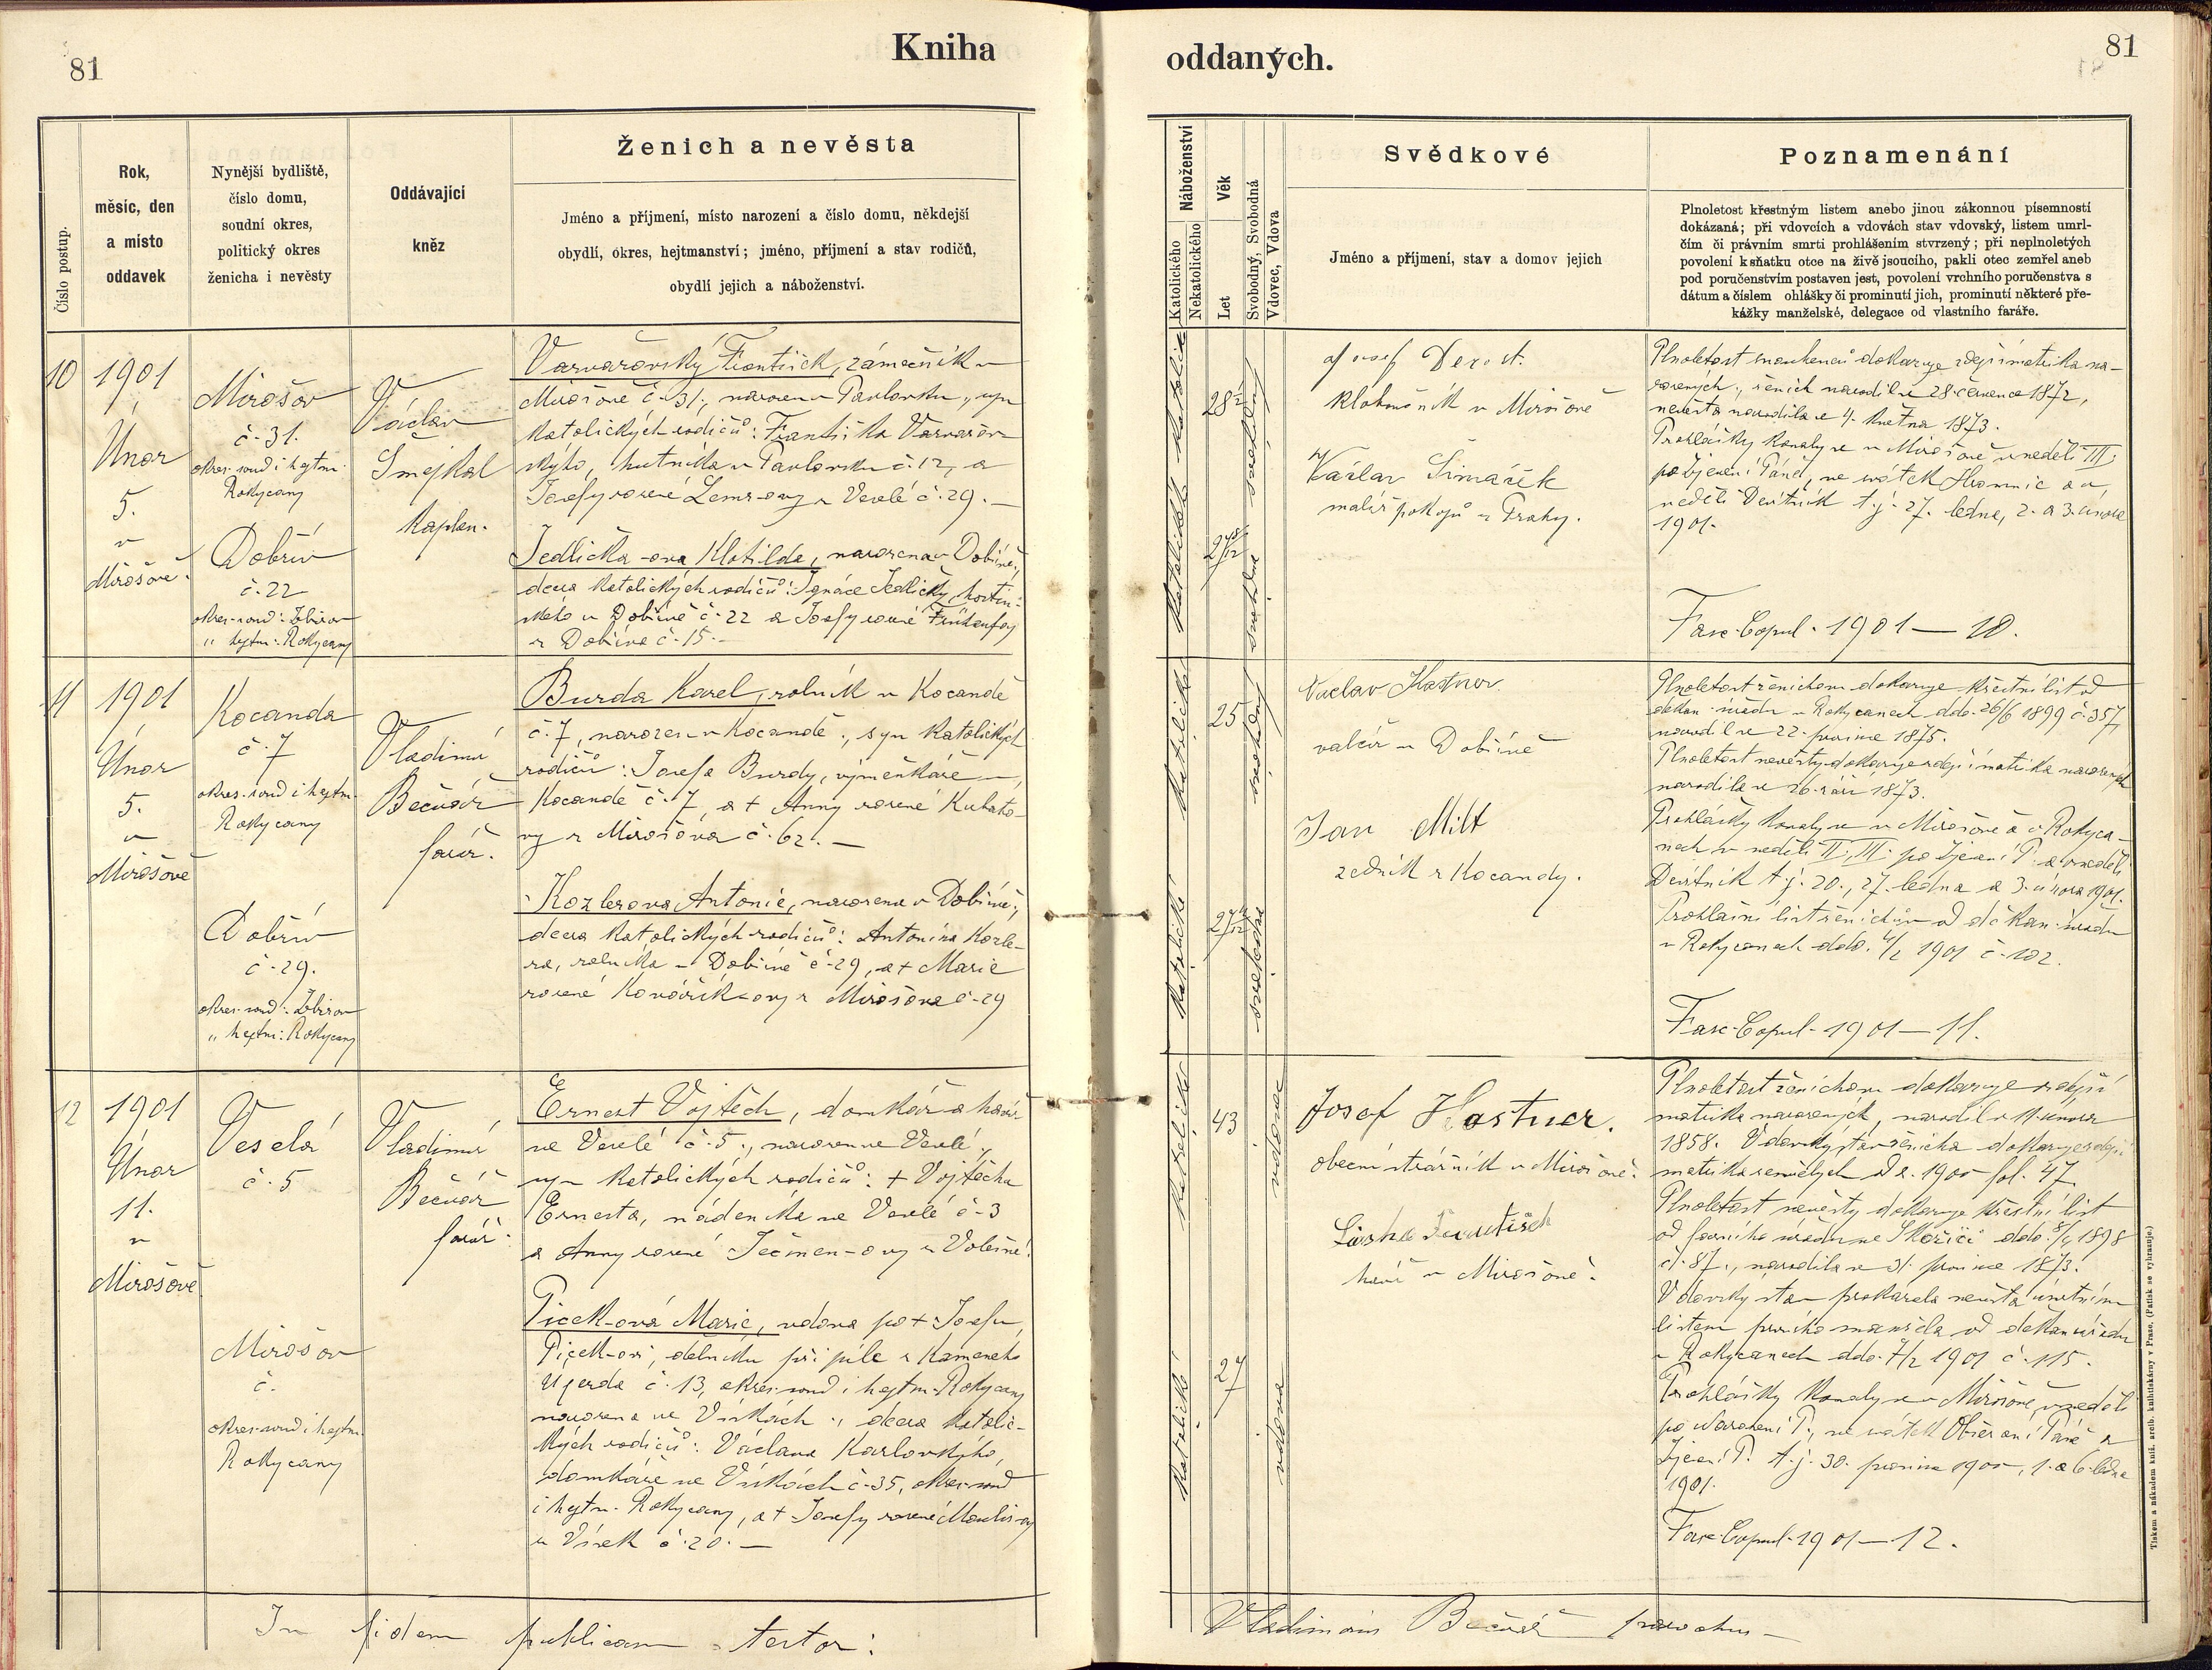 81
Kniha
oddaných.
81
Číslo postup.
Rok,
měsíc, den
a místo
oddavek
Nynější bydliště,
číslo domu,
soudní okres,
politický okres
ženicha i nevěsty
Oddávající
kněz
Ženich a nevěsta
Jméno a příjmení, místo narození a číslo domu, někdejší
obydlí, okres, hejtmanství; jméno, příjmení a stav rodičů,
obydlí jejich a náboženství.
10
1901
Únor
5.
v
Mirošově.
Mirošov
č. 31.
okres. soud i hejtm.
Rokycany
Dobřív
č. 22
okres. soud: Zbirov
" hejtm: Rokycany
Václav
Smejkal
kaplan.
Varvařovský František, zámečník v
Mirošově č. 31., narozen v Pavlovsku, syn
katolických rodičů: Františka Varvařov-
ského, hutníka v Pavlovsku č. 12, a
Josefy rozené z Veselé č. 29. —
Jedličk-ova Klotilda, narozena v Dobřívě,
dcera katolických rodičů: Ignáce Jedličky, hostin-
ského v Dobřívě č. 22 a Josefy rozené
z Dobříva č. 15. —
11
1901
Únor
5.
v
Mirošově
Kocanda
č. 7
okres. soud i hejtm.
Rokycany
Dobřív
č. 29.
okres. soud: Zbirov
" hejtm: Rokycany
Vladimír
Bečvář
farář.
Burda Karel, rolník v Kocandě
č. 7, narozen v Kocandě., syn katolických
rodičů: Josefa Burdy, výměnkáře v
Kocandě č. 7, a + Anny rozené Kubato-
vy z Mirošova č. 62. —
Kozlerova Antonie, narozena v Dobřívě.,
dcera katolických rodičů: Antonína Kozle-
ra, rolníka v Dobřívě č. 29, a + Marie
rozené Kovářík-ovy z Mirošova č. 29
12
1901
Únor
11.
v
Mirošově
Veselá
č. 5
Mirošov
č.
okres. soud i hejtm.
Rokycany
Vladimír
Bečvář
farář.
Ernest Vojtěch, domkář a havíř
ve Veselé č. 5., narozen ve Veselé.,
syn katolických rodičů: + Vojtěcha
Ernesta, nádeníka ve Veselé č. 3
a Anny rozené Ječmen-ovy z Volešné.
Picek-ová Marie, vdova po + Josefu
Picek-ovi, dělníku při pile z Kamenného
Újezda č. 13, okres. soud i hejtm. Rokycany
narozena ve Vískách., dcera katolic-
kých rodičů: Václava Karlovského,
domkáře ve Vískách č. 35, okres. soud
i hejtm. Rokycany, a + Josefy rozené
z Vísek č. 20. —
In fidem publicam testor:
Náboženství
Katolického
Nekatolického
Věk
Let
Svobodný, Svobodná
Vdovec, Vdova
Svědkové
Jméno a příjmení, stav a domov jejich
Poznamenání
Plnoletost křestným listem anebo jinou zákonnou písemností
dokázaná; při vdovcích a vdovách stav vdovský, listem umrl-
čím či právním smrti prohlášením stvrzený; při neplnoletých
povolení k sňatku otce na živě jsoucího, pakli otec zemřel aneb
pod poručenstvím postaven jest, povolení vrchního poručenstva s
dátum a číslem ohlášky či prominutí jich, prominutí některé pře-
kážky manželské, delegace od vlastního faráře.
Katolické
Katolické
svobodný
svobodna
Josef
kloboučník v Mirošově
Václav Šimáček
malíř pokojů z Prahy.
Plnoletost snoubenců dokazuje zdejší matrika na-
rozených, ženich narodil se 28. července 1872,
nevěsta narodila se 4. května 1873.
Prohlášky konaly se v Mirošově v neděli III.
po Zjevení Páně, ve svátek Hromnic a v
neděli Devítník t. j. 27. ledna, 2. a 3. února
1901.
Fasc. Copul. 1901 — 10.
Katolické
Katolické
25
svobodný
svobodna
Václav Kastner
valcíř v Dobřívě
Jan Milt
zedník z Kocandy.
Plnoletost ženichovu dokazuje křestní list od
děkan. úřadu v Rokycanech ddo. 26/6 1899 č. 357,
narodil se 22. prosince 1875.
Plnoletost nevěsty dokazuje zdejší matrika narozených
narodila se 26. září 1873.
Prohlášky konaly se v Mirošově a v Rokyca-
nech v neděli II., III. po Zjevení P. a v neděli
Devítník t. j. 20., 27. ledna a 3. února 1901.
Prohlašní list ženichův od děkan. úřadu
v Rokycanech ddo. 4/2 1901 č. 102.
Fasc. Copul. 1901 — 11.
Katolické
Katolické
43
27
vdovec
vdova
Josef Kastner.
obecní strážník v Mirošově.
Liška František
havíř v Mirošově.
Plnoletost ženichovu dokazuje zdejší
matrika narozených, narodil se 11. února
1858. Vdovský stav ženicha dokazuje zdejší
matrika zemřelých od r. 1900 fol. 47.
Plnoletost nevěsty dokazuje křestní list
od farního úřadu ve Skořici ddo. 1898
č. 87., narodila se 31. prosince 1873.
Vdovský stav prokázala nevěsta úmrtním
listem prvního manžela od děkan. úřadu
v Rokycanech ddo. 7/2 1901 č. 115.
Prohlášky konaly se v Mirošově, v neděli
po Narození P., ve svátek Obřezání Páně a
Zjevení P. t. j. 30. prosince 1900, 1. a 6. ledna
1901.
Fasc. Copul. 1901 — 12.
Vladimír Bečvář parochus
Tiskem a nákladem kníž. arcib. knihtiskárny v Praze. (Patisk se vyhrazuje.)